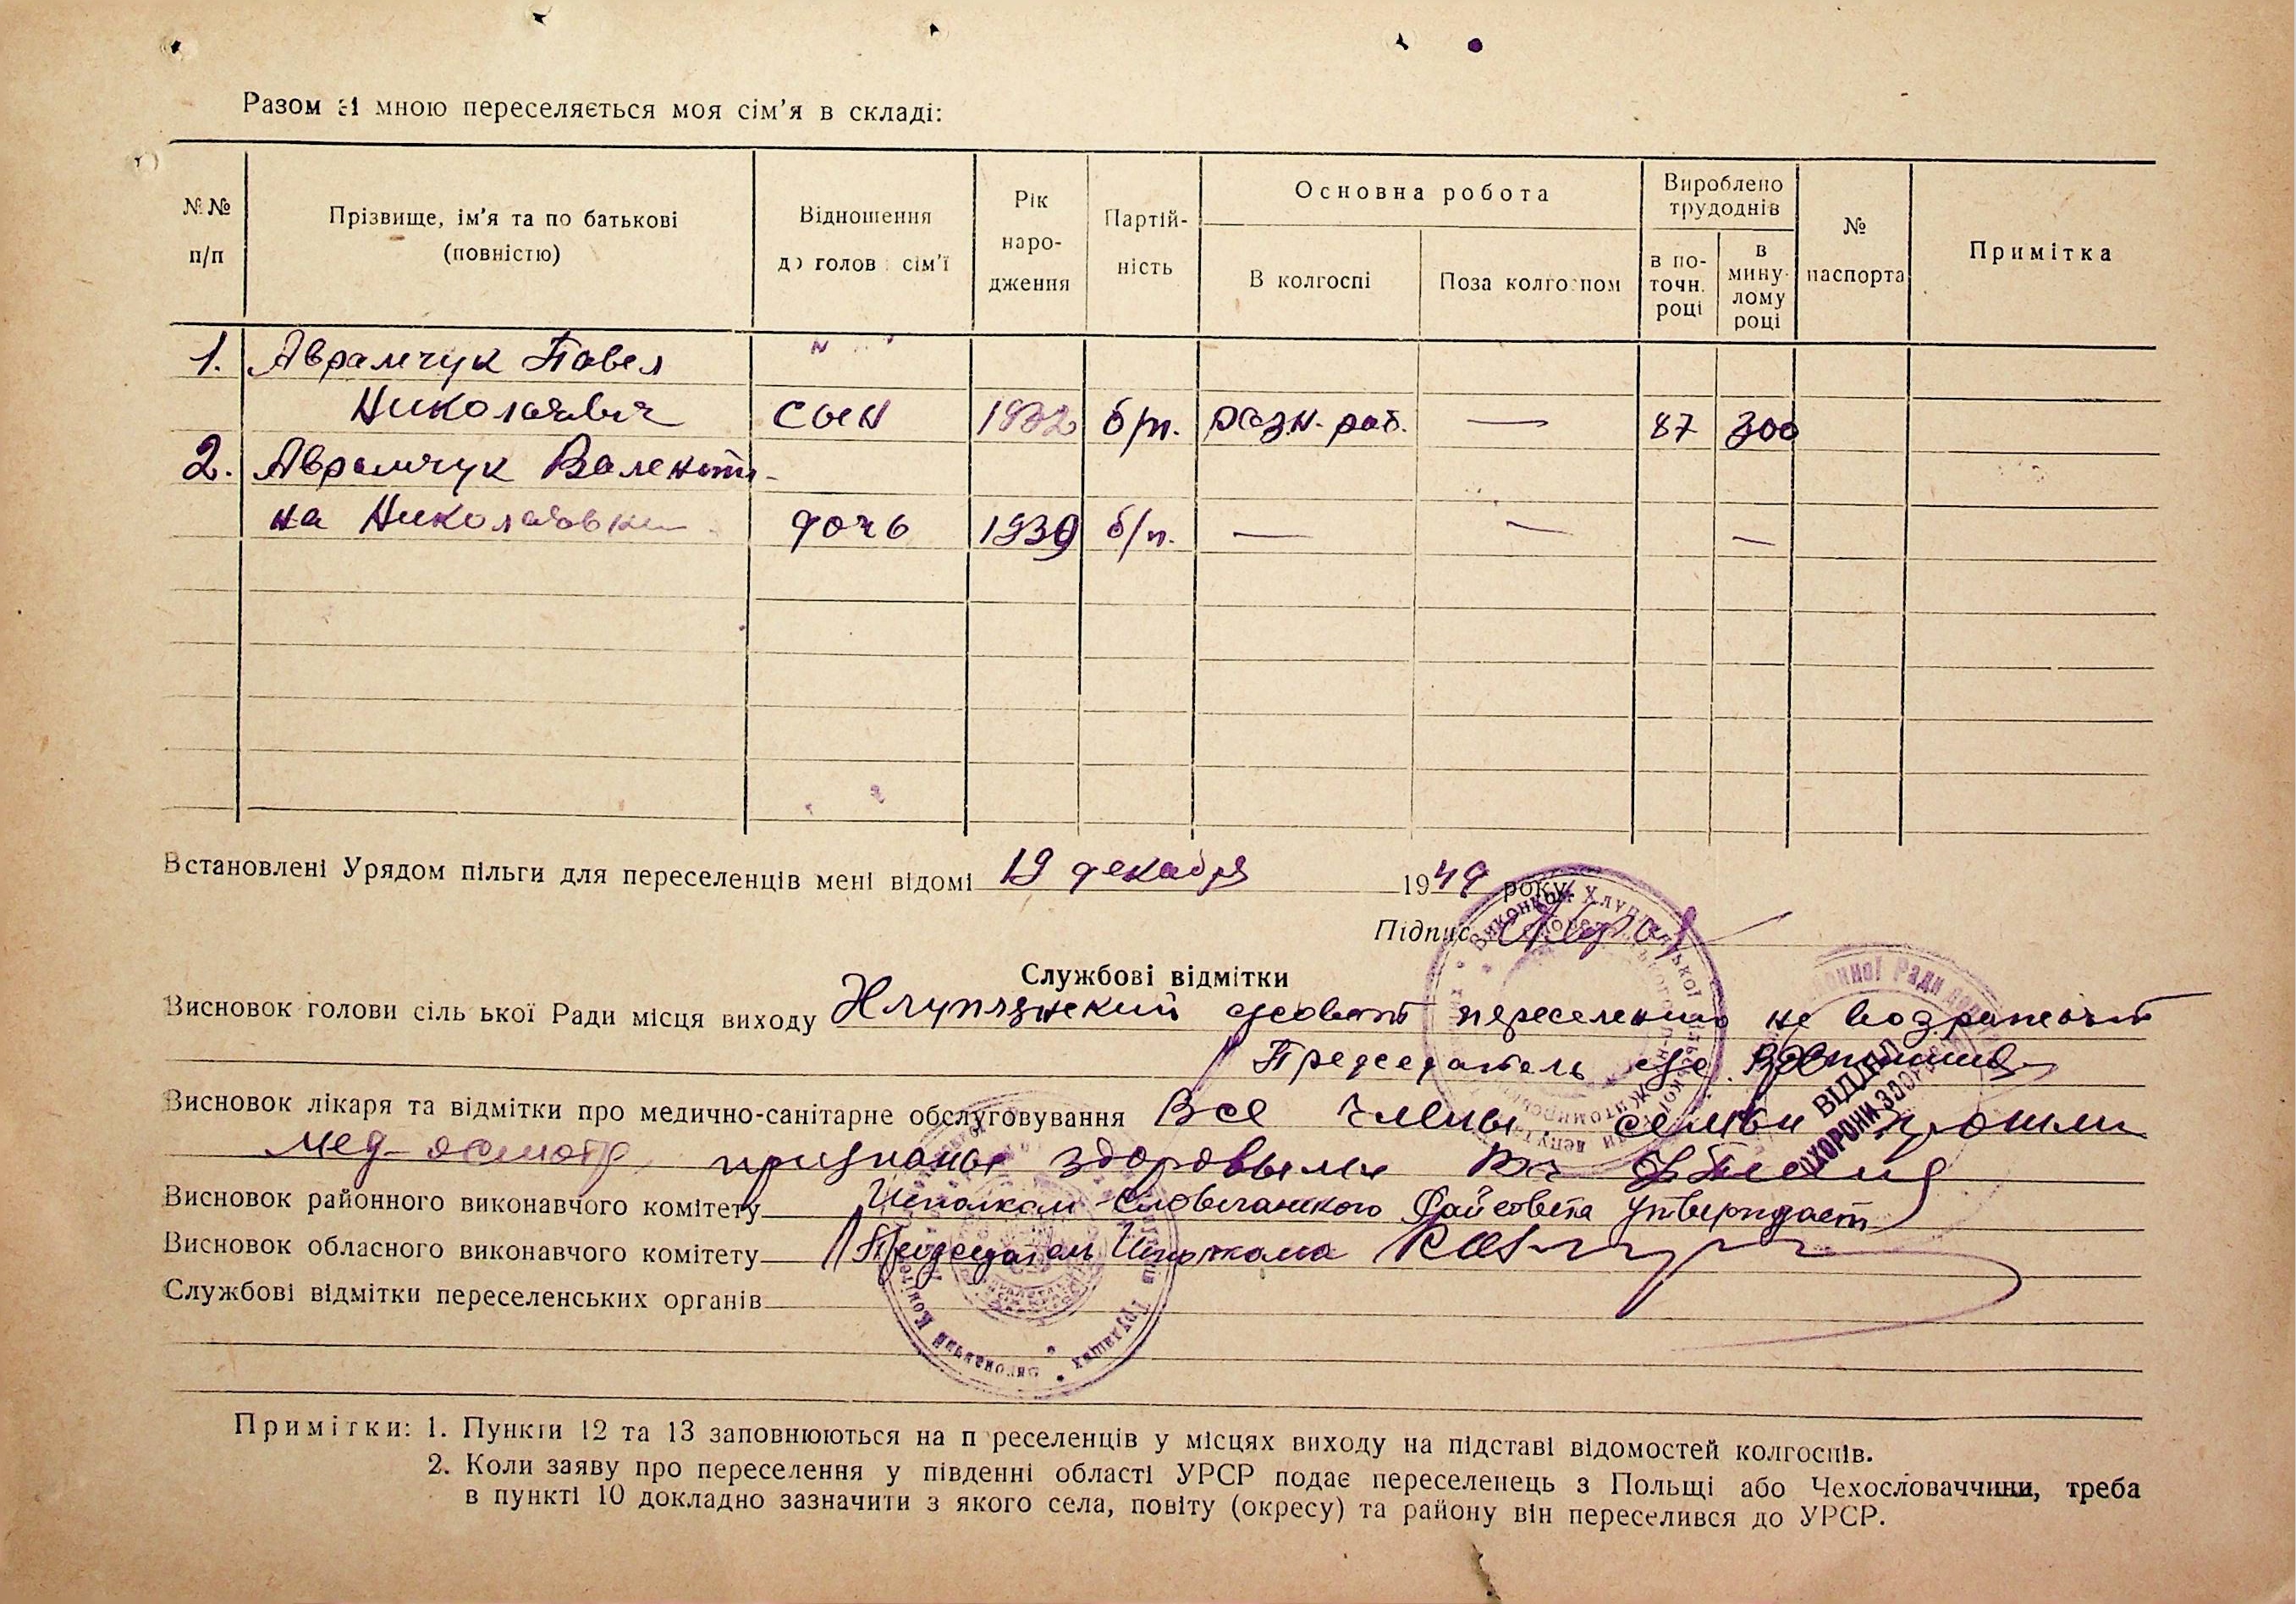 Разом зі мною переселяється моя сім'я в складі:
№№ п/п
Прізвище, ім'я та по батькові (повністю)
Відношення до голови сім'ї
Рік народження
Партійність
Основна робота
В колгоспі
Поза колгоспом
Вироблено трудоднів
в поточн. році
в минулому році
№ паспорта
Примітка
1. Аврамчук Павел
Николаевич сын 1932 б/п. разн. раб. — 87 300
2. Аврамчук Валенти-
на Николаевна дочь 1939 б/п. — — —
Встановлені Урядом пільги для переселенців мені відомі 19 декабря 1949 року
Підпис
Службові відмітки
Висновок голови сільської Ради місця виходу Хлуплянский с/совет переселению не возражает
Председатель с/с.
Висновок лікаря та відмітки про медично-санітарне обслуговування Все члены семьи прошли
мед-осмотр признаны здоровыми
Висновок районного виконавчого комітету Исполком Словечанского Райсовета утверждает
Висновок обласного виконавчого комітету Председатель Исполкома
Службові відмітки переселенських органів
ВІДДІЛ
ОХОРОНИ ЗДОРОВ'Я
Примітки: 1. Пункти 12 та 13 заповнюються на переселенців у місцях виходу на підставі відомостей колгоспів.
2. Коли заяву про переселення у південні області УРСР подає переселенець з Польщі або Чехословаччини, треба
в пункті 10 докладно зазначити з якого села, повіту (окресу) та району він переселився до УРСР.